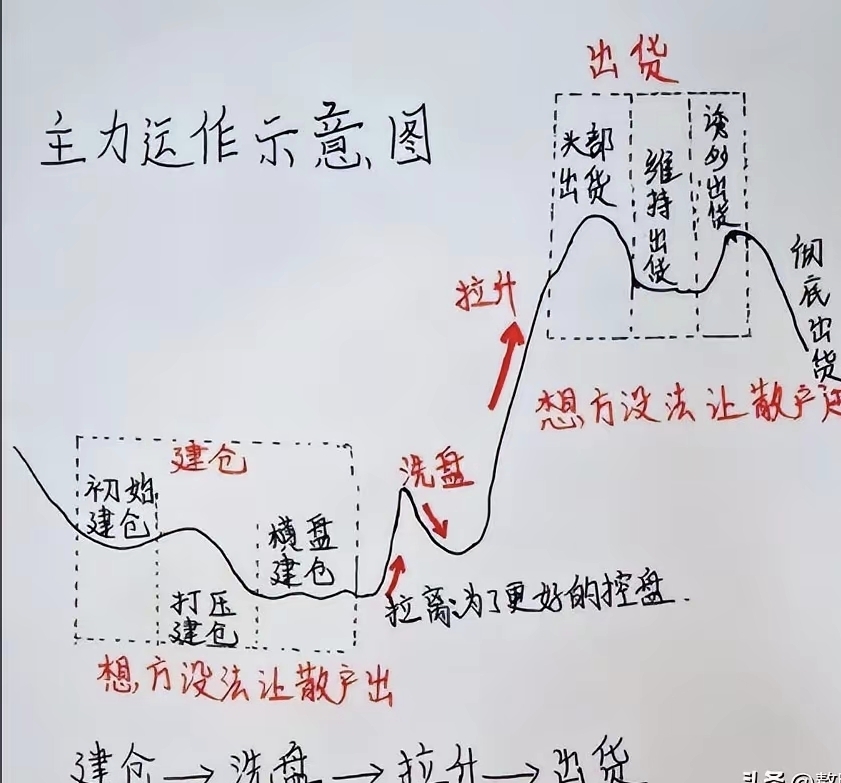 主力运作示意图
出货
头部出货
维持出货
诱多出货
彻底出货
拉升
想方设法让散户
建仓
初始建仓
打压建仓
横盘建仓
洗盘
拉离为了更好的控盘.
想方设法让散户出
建仓→洗盘→拉升→出货
头条